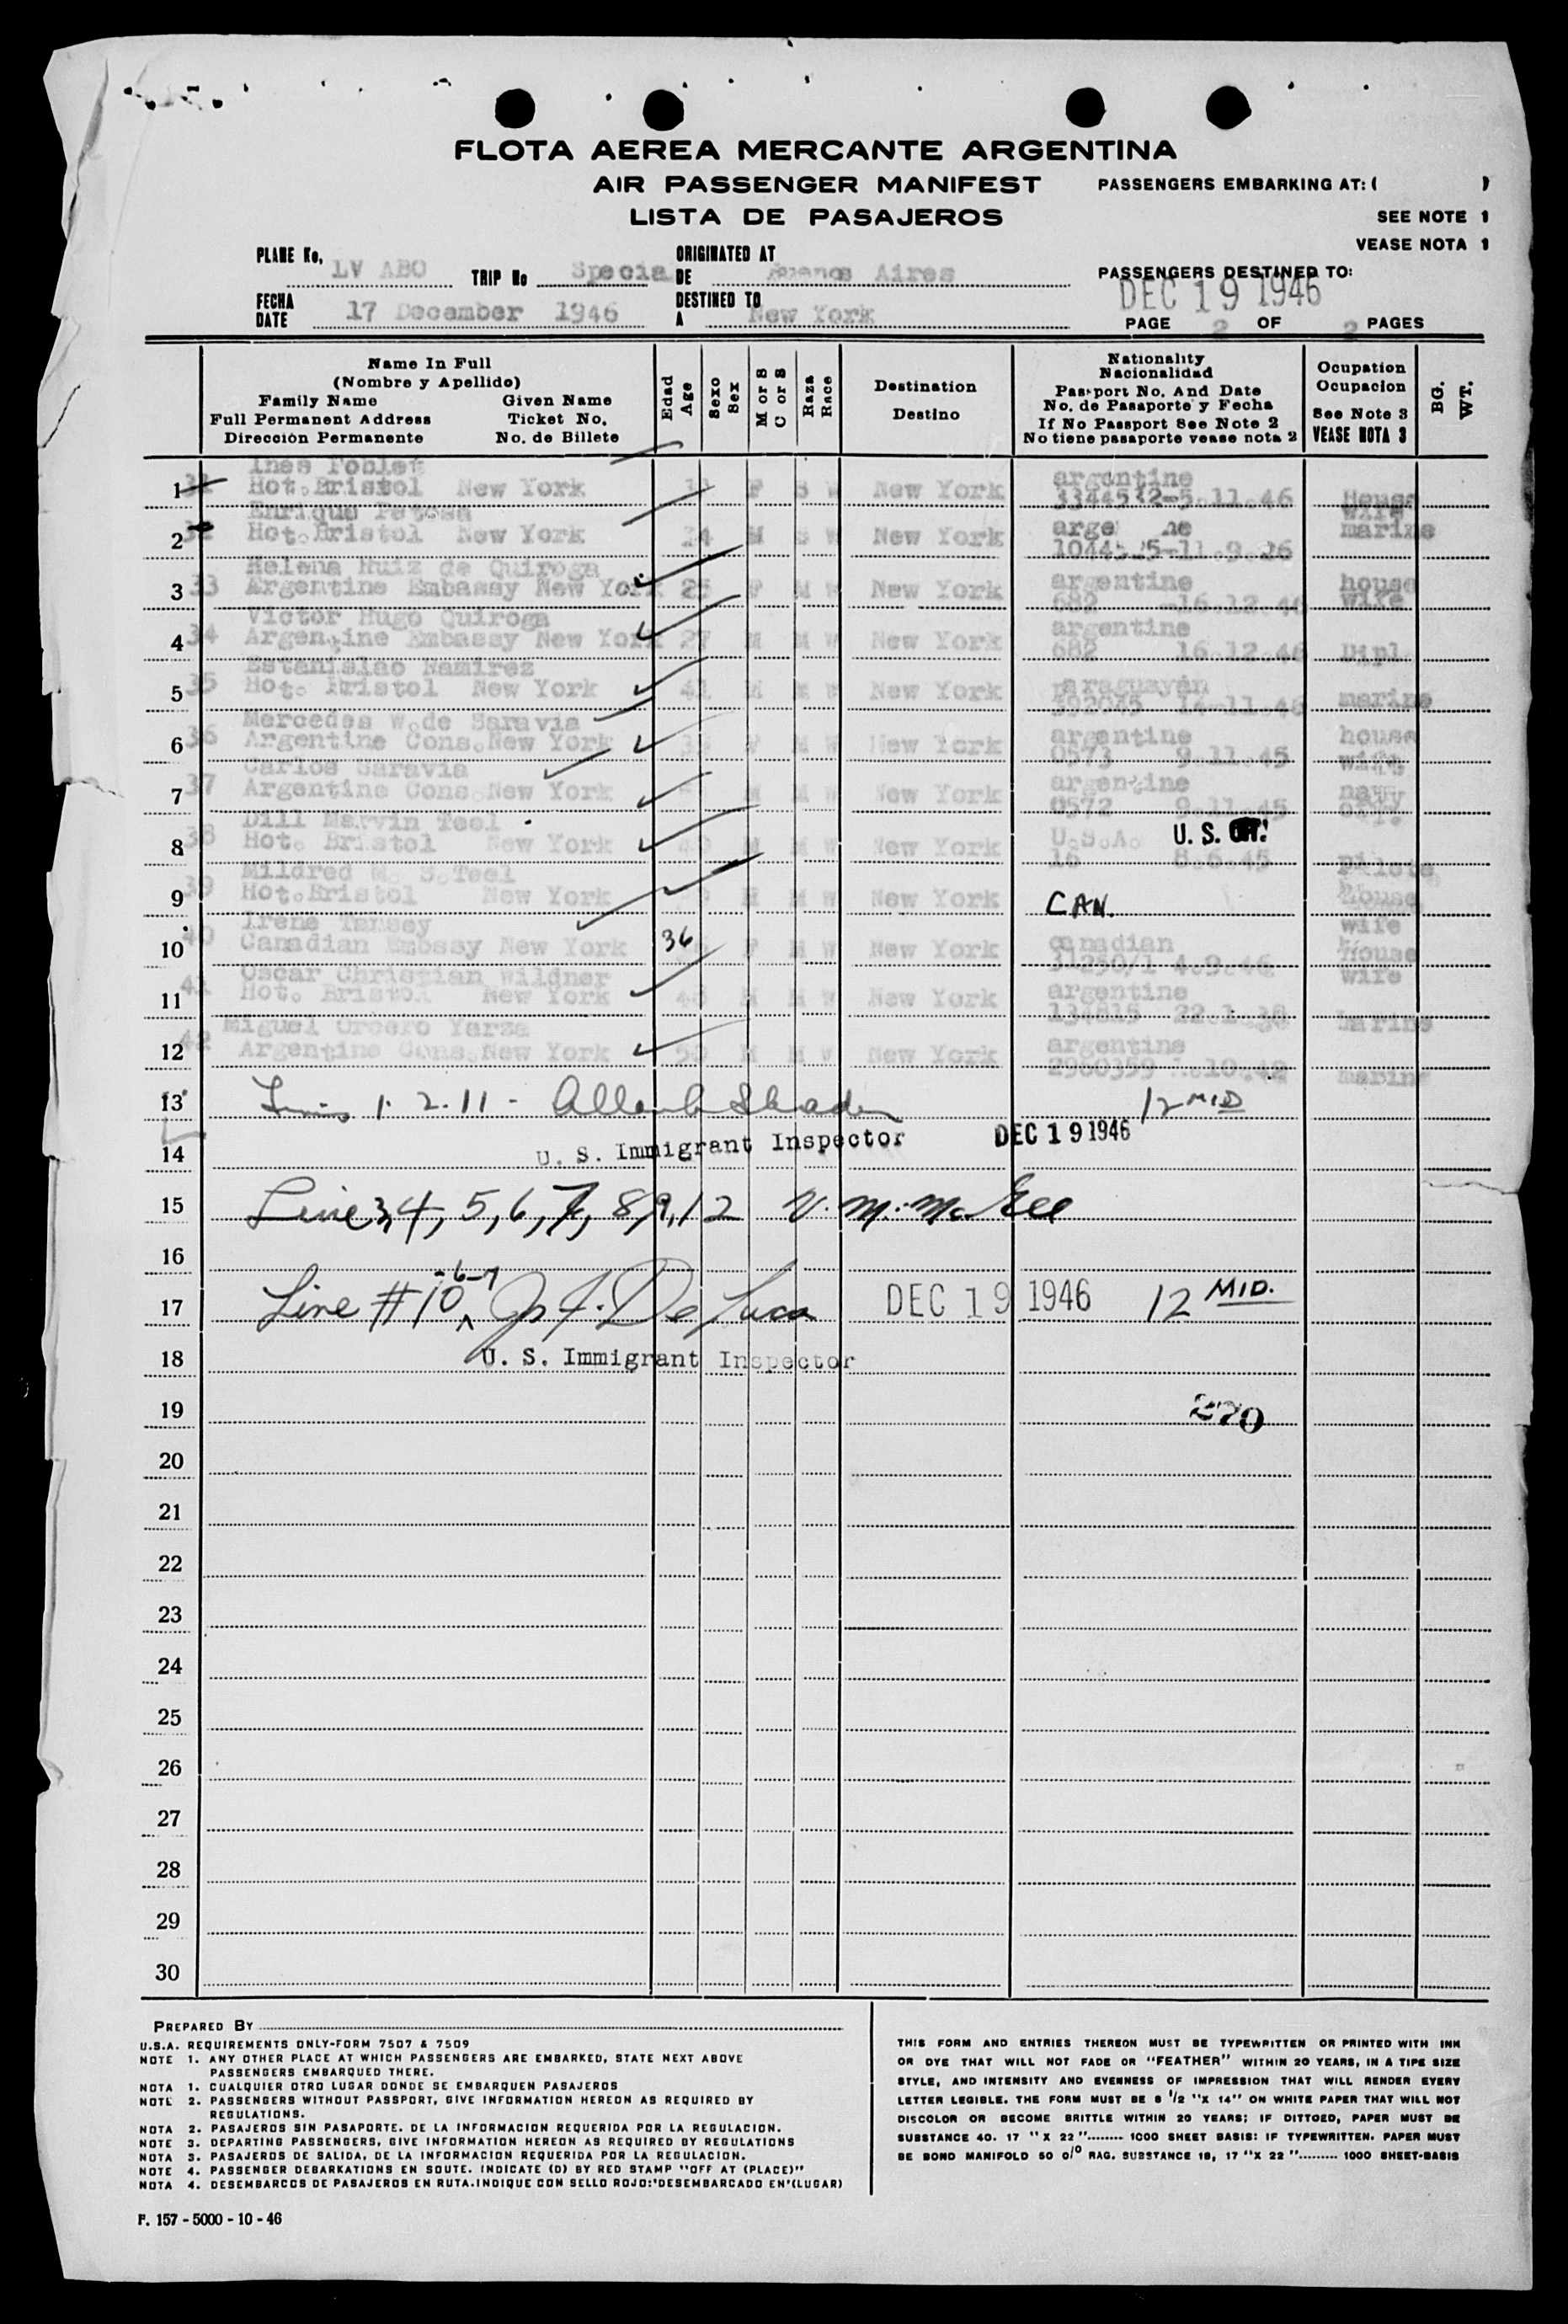 FLOTA AEREA MERCANTE ARGENTINA
AIR PASSENGER MANIFEST
PASSENGERS EMBARKING AT: ( )
LISTA DE PASAJEROS
SEE NOTE 1
VEASE NOTA 1
PLANE No. LV ABO TRIP No Special ORIGINATED AT DE Buenos Aires
PASSENGERS DESTINED TO:
DEC 19 1946
FECHA DATE 17 December 1946 DESTINED TO A New York
PAGE 2 OF 2 PAGES
Name In Full
(Nombre y Apellido)
Family Name Given Name
Full Permanent Address Ticket No.
Dirección Permanente No. de Billete
Edad Age
Sexo Sex
M or S C or S
Raza Race
Destination
Destino
Nationality
Nacionalidad
Passport No. And Date
No. de Pasaporte y Fecha
If No Passport See Note 2
No tiene pasaporte vease nota 2
Ocupation
Ocupacion
See Note 3
VEASE NOTA 3
BG. WT.
Ines Poblet argentine
1 31 Hot. Bristol New York F S W New York 3344532-5.11.46 House wife
Enrique Petosa
2 32 Hot. Bristol New York M S W New York marine
Helena Ruiz de Quiroga
3 33 Argentine Embassy New York 25 F M W New York argentine house wife
682 -16.12.46
Victor Hugo Quiroga argentine
4 34 Argentine Embassy New York 27 M M W New York 682 16.12.46 Dipl.
Estanislao Ramirez paraguayan
5 35 Hot. Bristol New York 41 M M W New York 392045 14-11.46 marine
Mercedes W. de Saravia argentine
6 36 Argentine Cons. New York F M W New York 0573 9.11.45 house wife
Carlos Saravia argentine
7 37 Argentine Cons. New York M M W New York 0572 9.11.45 navy off.
Dill Marvin Teel
8 38 Hot. Bristol New York M M W New York U.S.A. U. S.
16 8.6.45 pilote
Mildred M. S. Teel
9 39 Hot. Bristol New York M M W New York CAN. house wife
Irene Tansey
10 40 Canadian Embssy New York 36 F M W New York canadian house wife
31250/1 4.9.46
Oscar Christian Wildner
11 41 Hot. Bristol New York M M W New York argentine
134815 22.1.38 marine
Miguel Orcero Yarza
12 42 Argentine Cons. New York 50 M M W New York argentine
2960359 marine
13 1. 2. 11 - 12 MID
14 U. S. Immigrant Inspector DEC 19 1946
15 Line 3, 4, 5, 6, 7, 8, 9, 12 V. M. McGee
16
17 Line #10 -6-7 J. F. De Luca DEC 19 1946 12 MID.
18 U. S. Immigrant Inspector
19 270
20
21
22
23
24
25
26
27
28
29
30
PREPARED BY
U.S.A. REQUIREMENTS ONLY-FORM 7507 & 7509
NOTE 1. ANY OTHER PLACE AT WHICH PASSENGERS ARE EMBARKED, STATE NEXT ABOVE
PASSENGERS EMBARQUED THERE.
NOTA 1. CUALQUIER OTRO LUGAR DONDE SE EMBARQUEN PASAJEROS
NOTE 2. PASSENGERS WITHOUT PASSPORT, GIVE INFORMATION HEREON AS REQUIRED BY
REGULATIONS.
NOTA 2. PASAJEROS SIN PASAPORTE. DE LA INFORMACION REQUERIDA POR LA REGULACION.
NOTE 3. DEPARTING PASSENGERS, GIVE INFORMATION HEREON AS REQUIRED BY REGULATIONS
NOTA 3. PASAJEROS DE SALIDA, DE LA INFORMACION REQUERIDA POR LA REGULACION.
NOTE 4. PASSENGER DEBARKATIONS EN SOUTE. INDICATE (D) BY RED STAMP "OFF AT (PLACE)"
NOTA 4. DESEMBARCOS DE PASAJEROS EN RUTA. INDIQUE CON SELLO ROJO: "DESEMBARCADO EN" (LUGAR)
THIS FORM AND ENTRIES THEREON MUST BE TYPEWRITTEN OR PRINTED WITH INK
OR DYE THAT WILL NOT FADE OR "FEATHER" WITHIN 20 YEARS, IN A TIPE SIZE
STYLE, AND INTENSITY AND EVENNESS OF IMPRESSION THAT WILL RENDER EYERY
LETTER LEGIBLE. THE FORM MUST BE 8 1/2 "X 14" ON WHITE PAPER THAT WILL NOT
DISCOLOR OR BECOME BRITTLE WITHIN 20 YEARS; IF DITTOED, PAPER MUST BE
SUBSTANCE 40. 17 "X 22"........ 1000 SHEET BASIS: IF TYPEWRITTEN. PAPER MUST
BE BOND MANIFOLD 50 0/0 RAG. SUBSTANCE 18, 17 "X 22"......... 1000 SHEET-BASIS
F. 157 - 5000 - 10 - 46